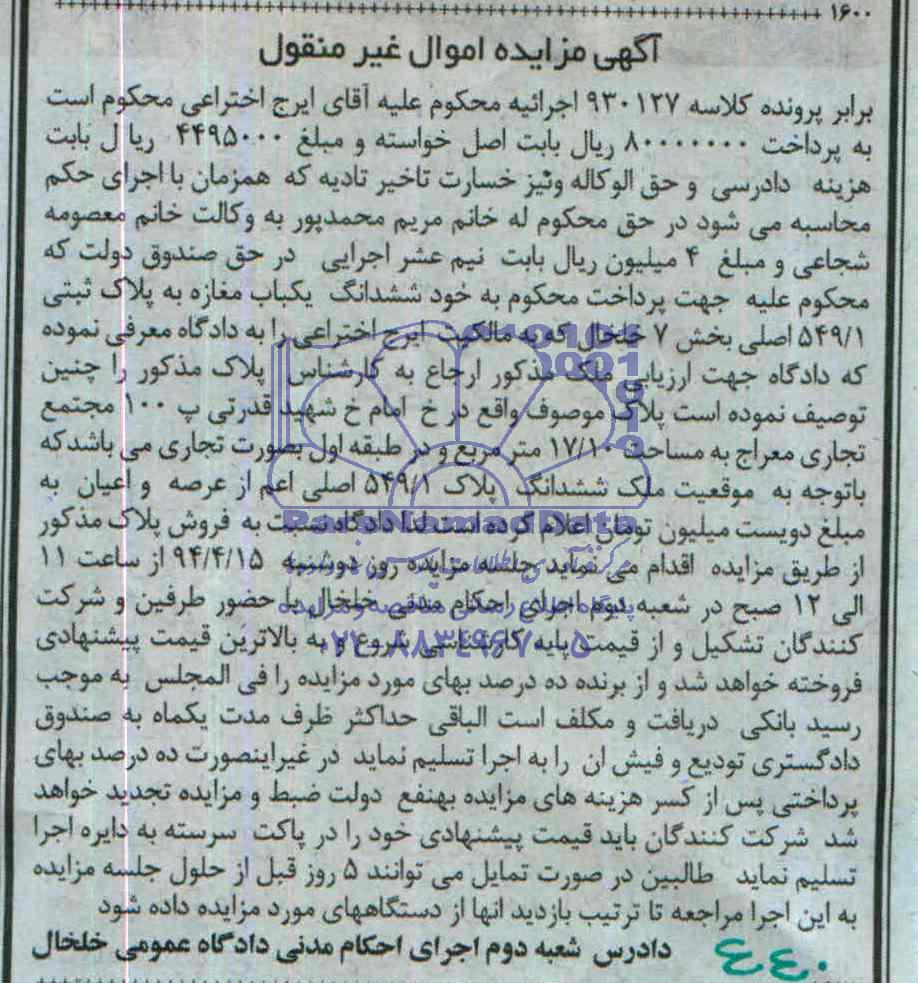 ۱۶۰۰
آگهی مزایده اموال غیر منقول
برابر پرونده کلاسه ۹۳۰۱۲۷ اجرائیه محکوم علیه آقای ایرج اختراعی محکوم است
به پرداخت ۸۰۰۰۰۰۰۰ ریال بابت اصل خواسته و مبلغ ۴۴۹۵۰۰۰ ریا ل بابت
هزینه دادرسی و حق الوکاله ونیز خسارت تاخیر تادیه که همزمان با اجرای حکم
محاسبه می شود در حق محکوم له خانم مریم محمدپور به وکالت خانم معصومه
شجاعی و مبلغ ۴ میلیون ریال بابت نیم عشر اجرایی در حق صندوق دولت که
محکوم علیه جهت پرداخت محکوم به خود ششدانگ یکباب مغازه به پلاک ثبتی
۵۴۹/۱ اصلی بخش ۷ خلخال که به مالکیت ایرج اختراعی را به دادگاه معرفی نموده
که دادگاه جهت ارزیابی ملک مذکور ارجاع به کارشناس پلاک مذکور را چنین
توصیف نموده است پلاک موصوف واقع در خ امام خ شهید قدرتی پ ۱۰۰ مجتمع
تجاری معراج به مساحت ۱۷/۱۰ متر مربع و در طبقه اول بصورت تجاری می باشدکه
باتوجه به موقعیت ملک ششدانگ پلاک ۵۴۹/۱ اصلی اعم از عرصه و اعیان به
مبلغ دویست میلیون تومان اعلام کرده است لذا دادگاه نسبت به فروش پلاک مذکور
از طریق مزایده اقدام می نماید جلسه مزایده روز دوشنبه ۹۴/۴/۱۵ از ساعت ۱۱
الی ۱۲ صبح در شعبه دوم اجرای احکام مدنی خلخال با حضور طرفین و شرکت
کنندگان تشکیل و از قیمت پایه کارشناسی شروع و به بالاترین قیمت پیشنهادی
فروخته خواهد شد و از برنده ده درصد بهای مورد مزایده را فی المجلس به موجب
رسید بانکی دریافت و مکلف است الباقی حداکثر ظرف مدت یکماه به صندوق
دادگستری تودیع و فیش ان را به اجرا تسلیم نماید در غیراینصورت ده درصد بهای
پرداختی پس از کسر هزینه های مزایده بهنفع دولت ضبط و مزایده تجدید خواهد
شد شرکت کنندگان باید قیمت پیشنهادی خود را در پاکت سرسته به دایره اجرا
تسلیم نماید طالبین در صورت تمایل می توانند ۵ روز قبل از حلول جلسه مزایده
به این اجرا مراجعه تا ترتیب بازدید انها از دستگاههای مورد مزایده داده شود
دادرس شعبه دوم اجرای احکام مدنی دادگاه عمومی خلخال
ParsNamadData
۰۲۱-۸۸۳۴۹۶۷۰-۵